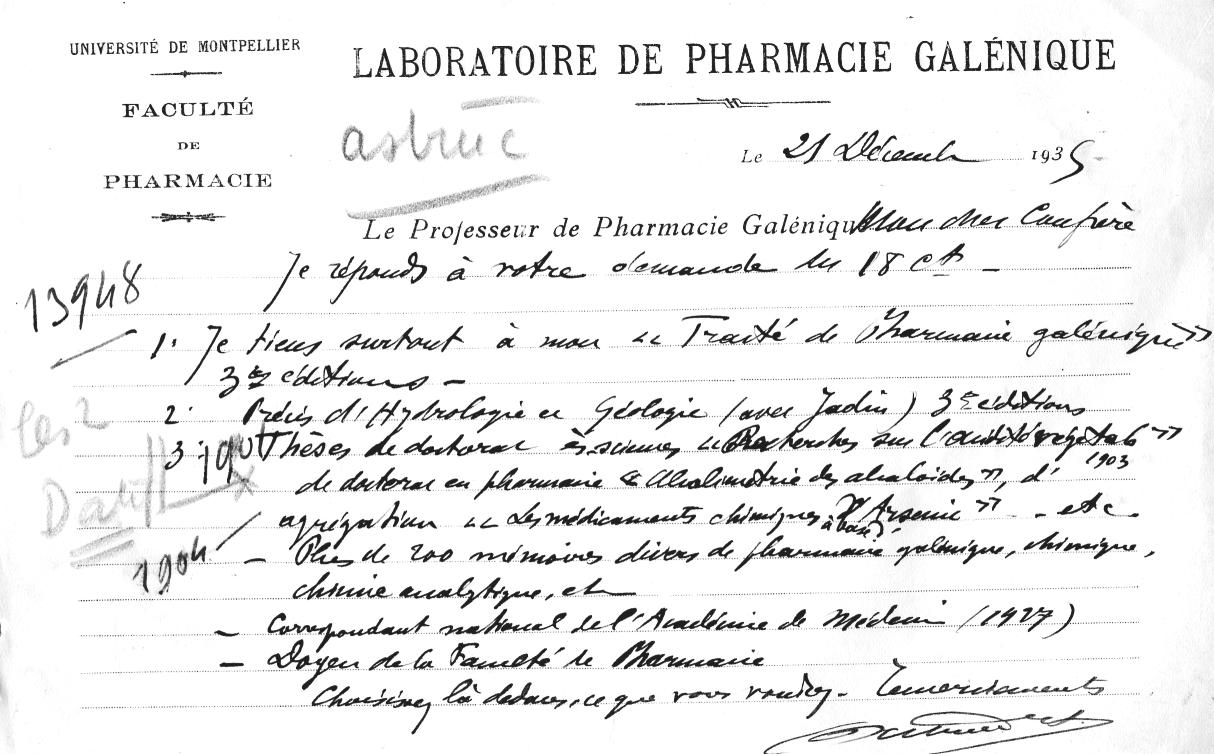 UNIVERSITÉ DE MONTPELLIER
FACULTÉ
DE
PHARMACIE
LABORATOIRE DE PHARMACIE GALÉNIQUE
astruc
Le 21 Décembre 1935
Le Professeur de Pharmacie Galénique Mon cher Confrère
Je réponds à votre demande du 18 ct -
13948
1° Je tiens surtout à mon "Traité de Pharmacie galénique"
3 éditions -
2° Précis d'Hydrologie et Géologie (avec Jadin) 3 éditions
les 2
3° Thèses de doctorat ès sciences "Recherches sur l'acidité végétale"
de doctorat en pharmacie "Alcalimétrie des alcaloïdes", d'
1903
agrégation "Les médicaments chimiques à base d'Arsenic" - etc
1904
- Plus de 200 mémoires divers de pharmacie galénique, chimique,
chimie analytique, etc
- Correspondant national de l'Académie de Médecine (1927)
- Doyen de la Faculté de Pharmacie
Choisissez là dedans, ce que vous voudrez - Remerciements